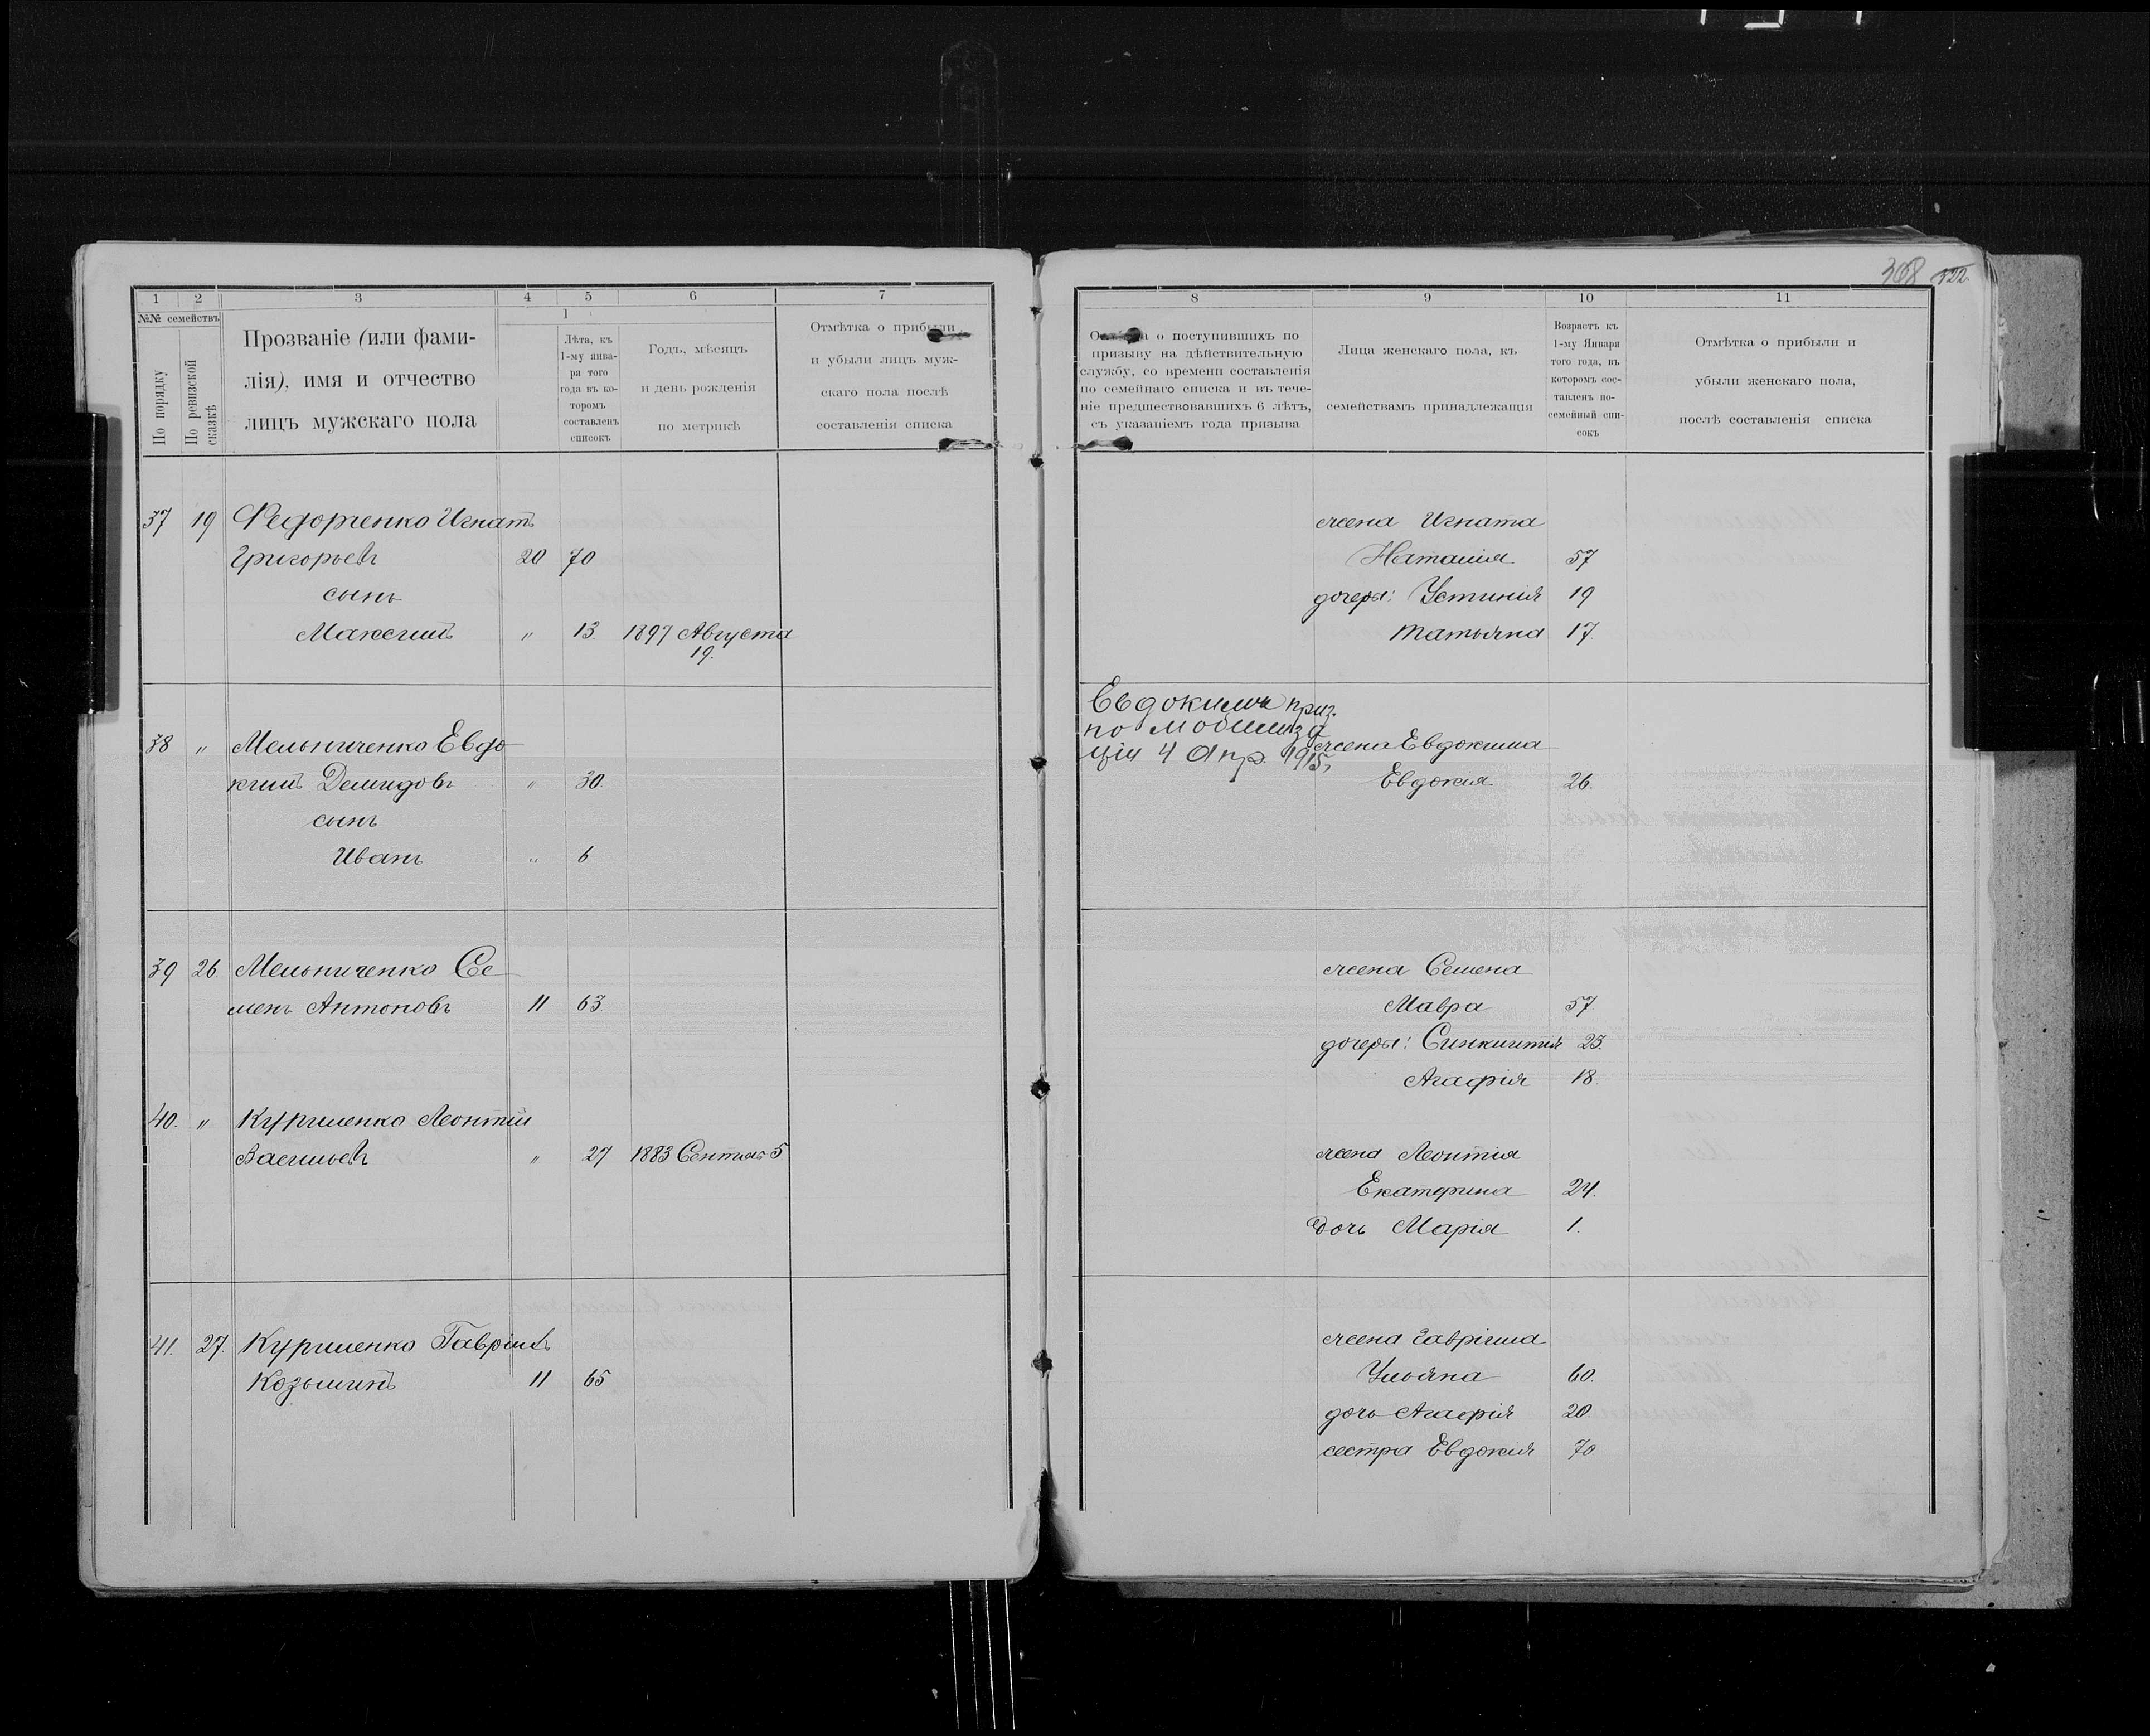 308 322
1 2 3 4 5 6 7
№№ семействъ
По порядку
По ревизской сказкѣ
Прозваніе (или фами-
лія), имя и отчество
лицъ мужскаго пола
1
Лѣта, къ
1-му янва-
ря того
года въ ко-
торомъ
составленъ
списокъ
Годъ, мѣсяцъ
и день рожденія
по метрикѣ
Отмѣтка о прибыли
и убыли лицъ муж-
скаго пола послѣ
составленія списка
37 19 Федорченко Игнатъ
Григорьевъ 20 70
сынъ
Максимъ " 13 1897 Августа
19.
38 " Мельниченко Евдо
кимъ Демидовъ " 30.
сынъ
Иванъ " 6
39 26 Мельниченко Се
менъ Антоновъ 11 63
40. " Куриленко Леонтій
Васильевъ " 27 1883 Сентяб 5
41. 27. Куриленко Гавріилъ
Козьминъ 11 65
8 9 10 11
о поступившихъ по
призыву на дѣйствительную
службу, со времени составленія
по семейнаго списка и въ тече-
ніе предшествовавшихъ 6 лѣтъ,
съ указаніемъ года призыва
Лица женскаго пола, къ
семействамъ принадлежащія
Возрастъ къ
1-му Января
того года, въ
которомъ сос-
тавленъ по-
семейный спи-
сокъ
Отмѣтка о прибыли и
убыли женскаго пола,
послѣ составленія списка
жена Игната
Наталія 57
дочери: Устинія 19
Татьяна 17.
Евдокимъ приз.
по мобилиза
ціи 4 Апр. 1915г
жена Евдокима
Евдокія 26.
жена Семена
Мавра 57
дочери: Синклитія 23.
Агафія 18.
жена Леонтія
Екатерина 24.
дочь Марія 1.
жена Гавріила
Ульяна 60.
дочь Агафія 20
сестра Евдокія 70